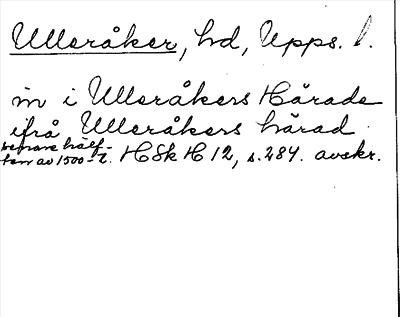 Ulleråker, hd, Upps. l.
in i Ulleråkers Härade
ifrå Ulleråkers härad
senare hälf-
ten av 1500-t. HSk H 12, s.284. avskr.